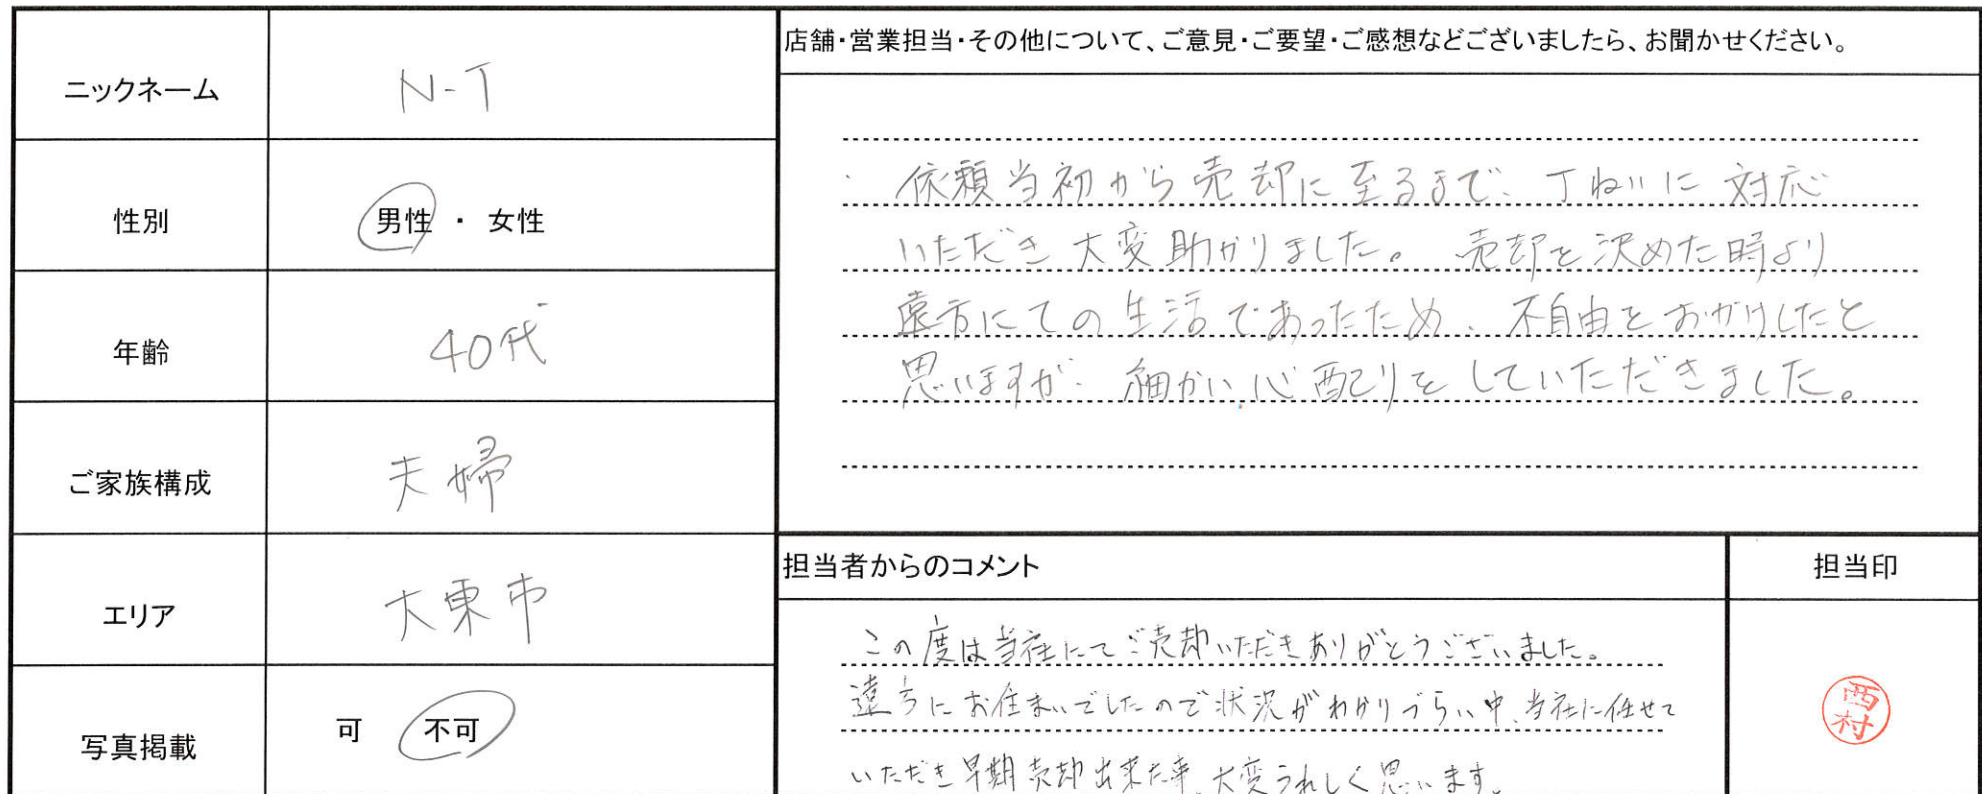 ニックネーム
N-T
性別
男性 ・ 女性
年齢
40代
ご家族構成
夫婦
エリア
大東市
写真掲載
可 不可
店舗・営業担当・その他について、ご意見・ご要望・ご感想などございましたら、お聞かせください。
依頼当初から売却に至るまで、丁ねいに対応
いただき大変助かりました。売却を決めた時より
遠方にての生活であったため、不自由をおかけしたと
思いますが、細かい心配りをしていただきました。
担当者からのコメント
この度は当社にてご売却いただきありがとうございました。
遠方にお住まいでしたので状況がわかりづらい中、当社に任せて
いただき早期売却出来た事、大変うれしく思います。
担当印
西村